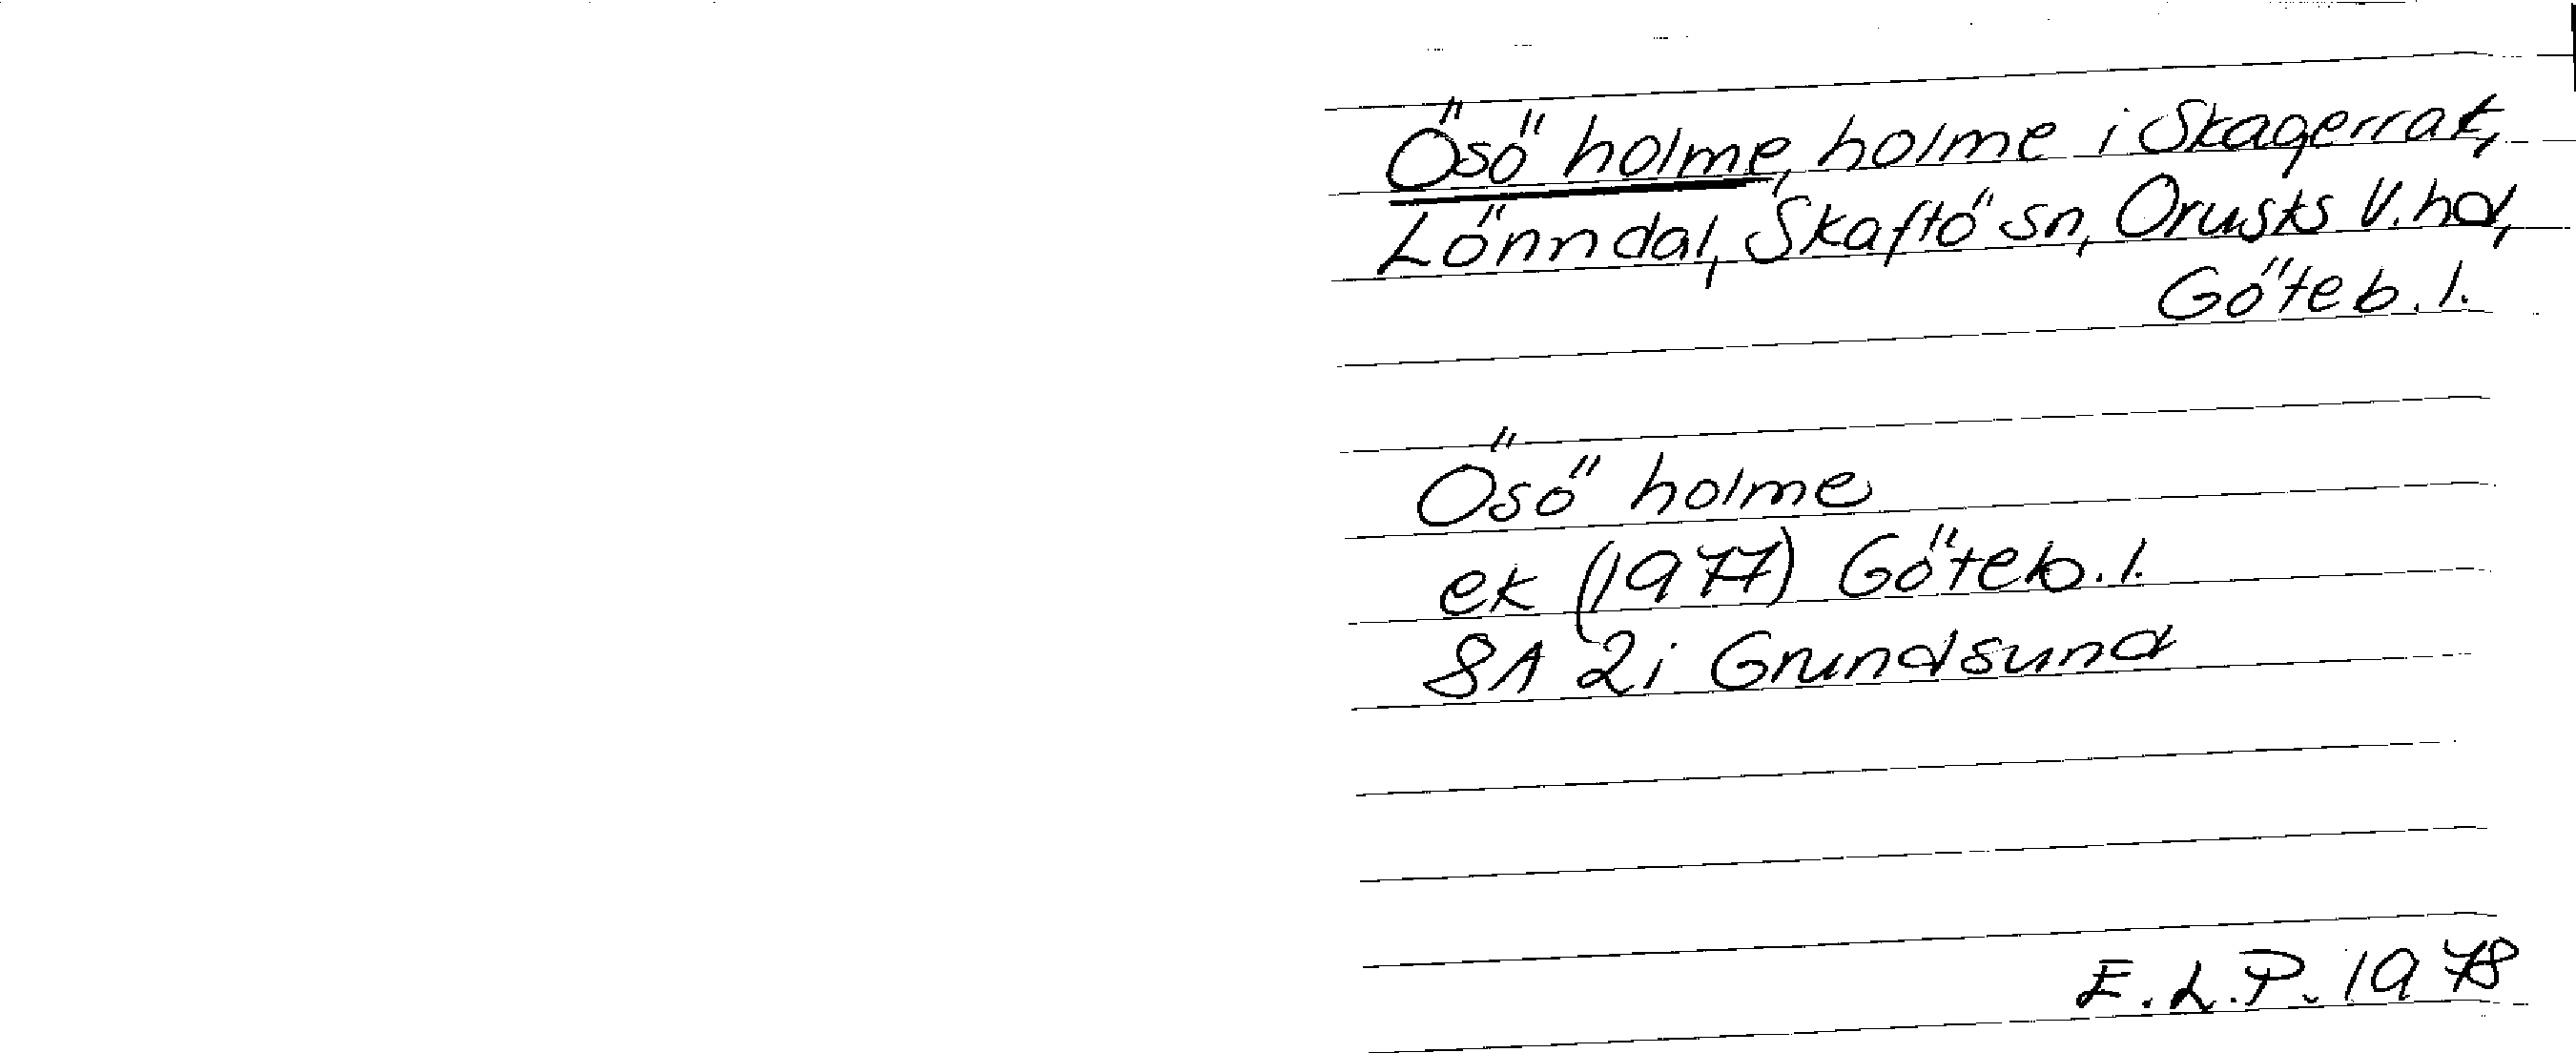 Ösö holme, holme i Skagerrak,
Lönndal, Skaftö sn, Orusts V. hd,
Göteb. l.
Ösö holme
ek (1977) Göteb. l.
8A 2i Grundsund
E. L. P. 1978